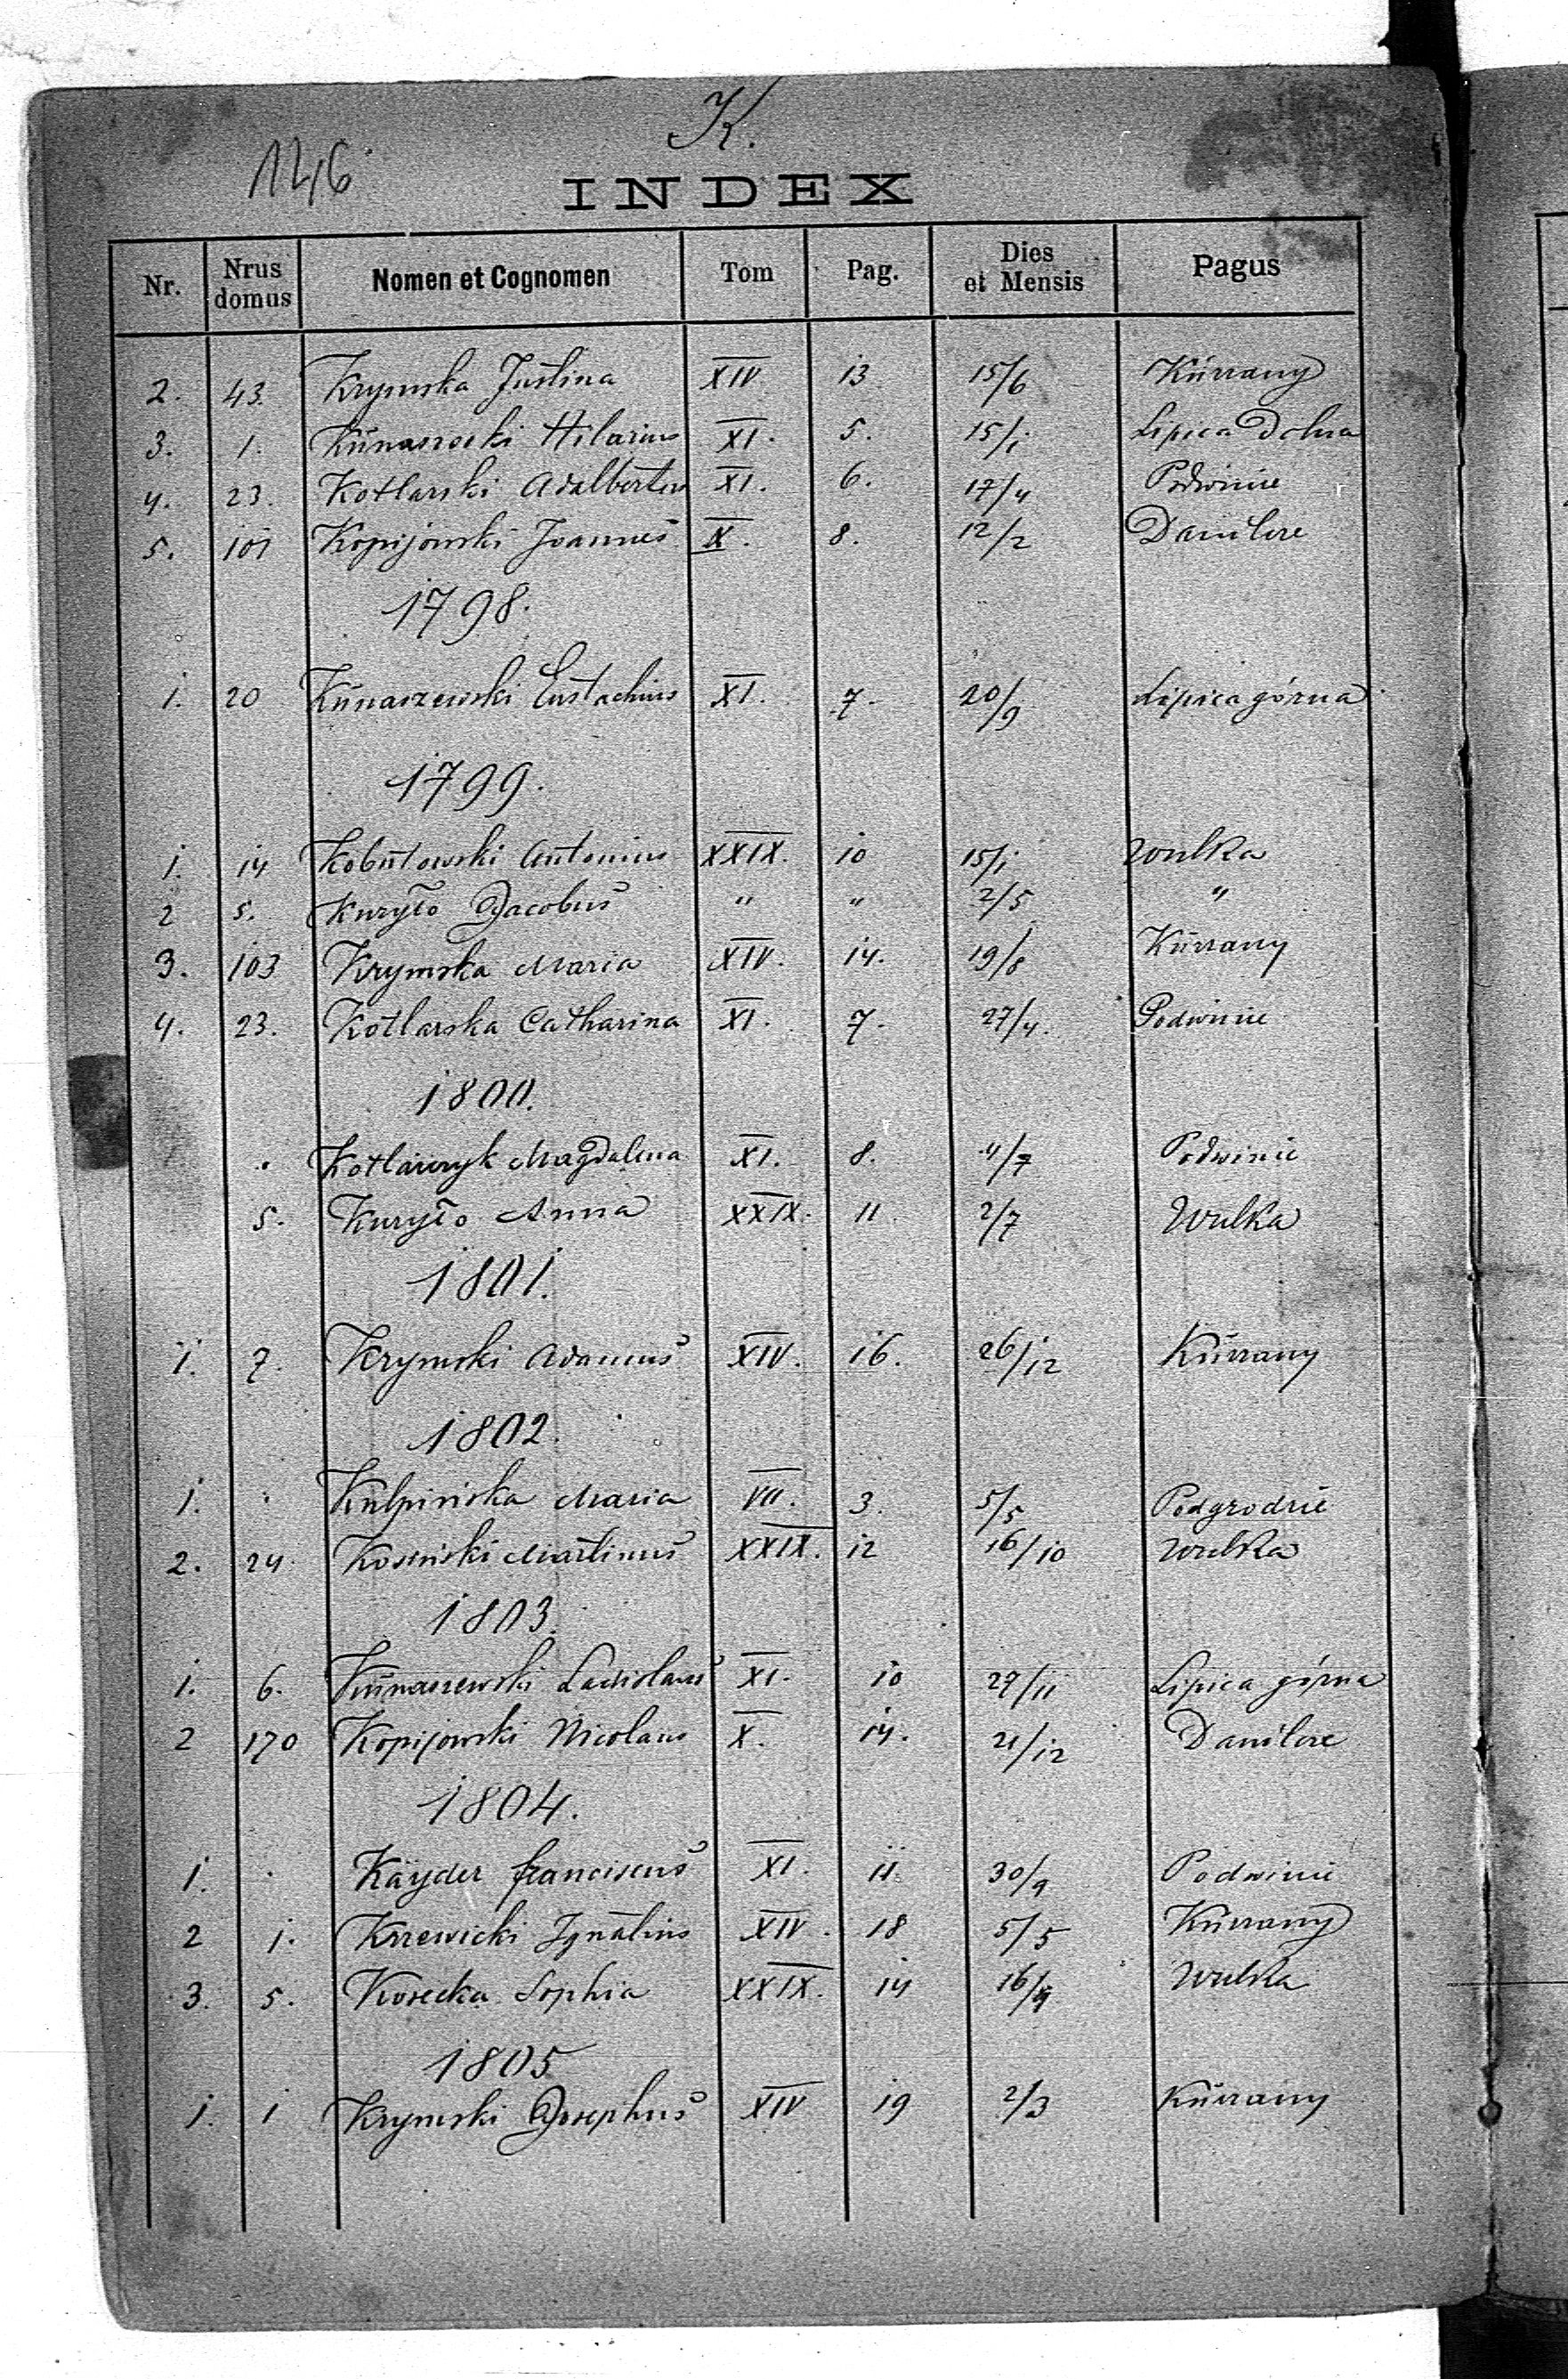 K.
146
INDEX
Nr. Nrus domus Nomen et Cognomen Tom Pag. Dies et Mensis Pagus
2. 43. Krymska Justina XIV 13 15/6 Kurzany
3. 1. Kunaszeski Hilarius XI. 5. 15/1 Lipica Dolna
4. 23. Kotlarski Adalbertus XI. 6. 17/4 Podwinie
5. 101 Kopijowski Joannes X. 8. 12/2 Danilcze
1798.
1. 20 Kunaszewski Eustachius XI. 7. 20/9 Lipica górna
1799.
1. 14 Kobutowski Antonius XXIX. 10 15/1 Wulka
2 5. Kuryło Jacobus " " 2/5 "
3. 103 Krymska Maria XIV. 14. 19/8 Kurzany
4. 23. Kotlarska Catharina XI. 7. 27/4. Podwinie
1800.
. Kotlarczyk Magdalena XI. 8. 4/7 Podwinie
5. Kuryło Anna XXIX. 11. 2/7 Wulka
1801.
1. 7. Krymski Adamus XIV. 16. 26/12 Kurzany
1802.
1. . Kulpińska Maria VII. 3. 5/5 Podgrodzie
2. 24. Kosiński Martinus XXIX. 12 16/10 Wulka
1803.
1. 6. Kunaszewski Ladislaus XI. 10 29/11 Lipica górna
2 170 Kopijowski Nicolaus X. 14. 21/12 Danilcze
1804.
1. . Kayder Franciscus XI. 11. 30/9 Podwinie
2 1. Krzewicki Ignatius XIV. 18 5/5 Kurzany
3. 5. Kosecka Sophia XXIX. 14 16/9 Wulka
1805
1. 1 Krymski Josephus XIV 19 2/3 Kurzany